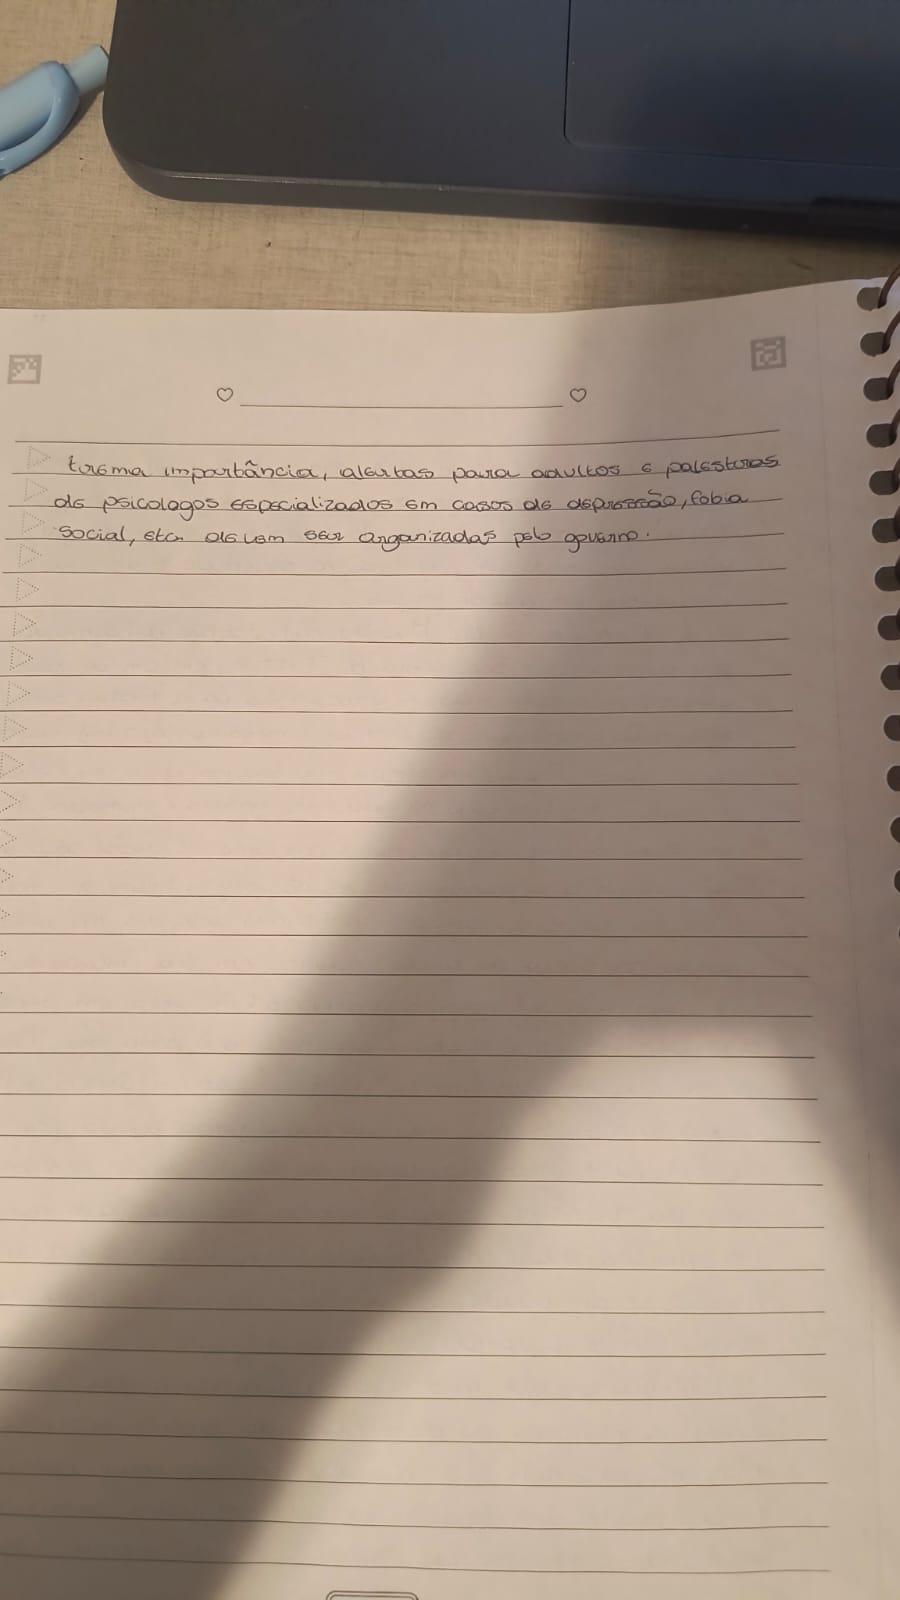 trema importância, alertas para adultos e palestras
de psicologos especializados em casos de depressão, fobia
social, etc. devem ser organizadas pelo governo.